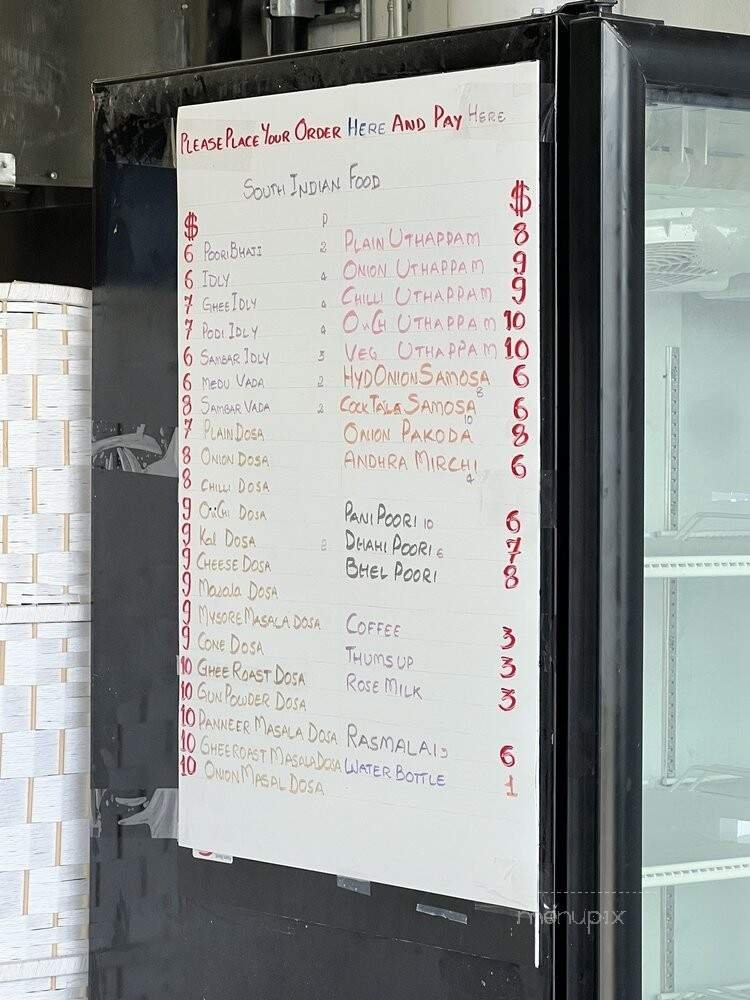 PLEASE PLACE YOUR ORDER HERE AND PAY HERE
SOUTH INDIAN FOOD
$ P
6 POORI BHAJI 2
6 IDLY 4
7 GHEE IDLY 4
7 PODI IDLY 4
6 SAMBAR IDLY 3
6 MEDU VADA 2
8 SAMBAR VADA 2
7 PLAIN DOSA
8 ONION DOSA
8 CHILLI DOSA
9 ONCHI DOSA
9 KAL DOSA 2
9 CHEESE DOSA
9 MASALA DOSA
9 MYSORE MASALA DOSA
9 CONE DOSA
10 GHEE ROAST DOSA
10 GUN POWDER DOSA
10 PANNEER MASALA DOSA
10 GHEEROAST MASALA DOSA
10 ONION MASAL DOSA
$
PLAIN UTHAPPAM 8
ONION UTHAPPAM 9
CHILLI UTHAPPAM 9
OnCh UTHAPPAM 10
VEG UTHAPPAM 10
HYD ONION SAMOSA 8 6
COCKTAIL SAMOSA 10 6
ONION PAKODA 8
ANDHRA MIRCHI 4 6
PANI POORI 10 6
DHAHI POORI 6 7
BHEL POORI 8
COFFEE 3
THUMSUP 3
ROSE MILK 3
RASMALAI 3 6
WATER BOTTLE 1
menupix